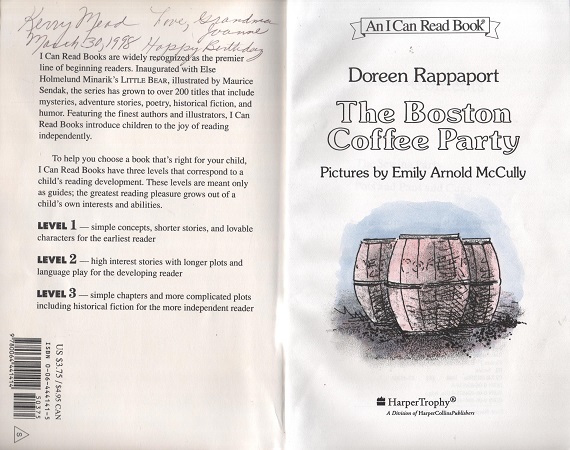 Kerry Mead Love, Grandma
Joanne
March 30, 1998 Happy Birthday
I Can Read Books are widely recognized as the premier
line of beginning readers. Inaugurated with Else
Holmelund Minarik's LITTLE BEAR, illustrated by Maurice
Sendak, the series has grown to over 200 titles that include
mysteries, adventure stories, poetry, historical fiction, and
humor. Featuring the finest authors and illustrators, I Can
Read Books introduce children to the joy of reading
independently.
To help you choose a book that's right for your child,
I Can Read Books have three levels that correspond to a
child's reading development. These levels are meant only
as guides; the greatest reading pleasure grows out of a
child's own interests and abilities.
LEVEL 1 — simple concepts, shorter stories, and lovable
characters for the earliest reader
LEVEL 2 — high interest stories with longer plots and
language play for the developing reader
LEVEL 3 — simple chapters and more complicated plots
including historical fiction for the more independent reader
US $3.75 / $4.95 CAN
ISBN 0-06-444141-5
50375
9780064441414
S
An I Can Read Book®
Doreen Rappaport
The Boston
Coffee Party
Pictures by Emily Arnold McCully
HarperTrophy®
A Division of HarperCollinsPublishers